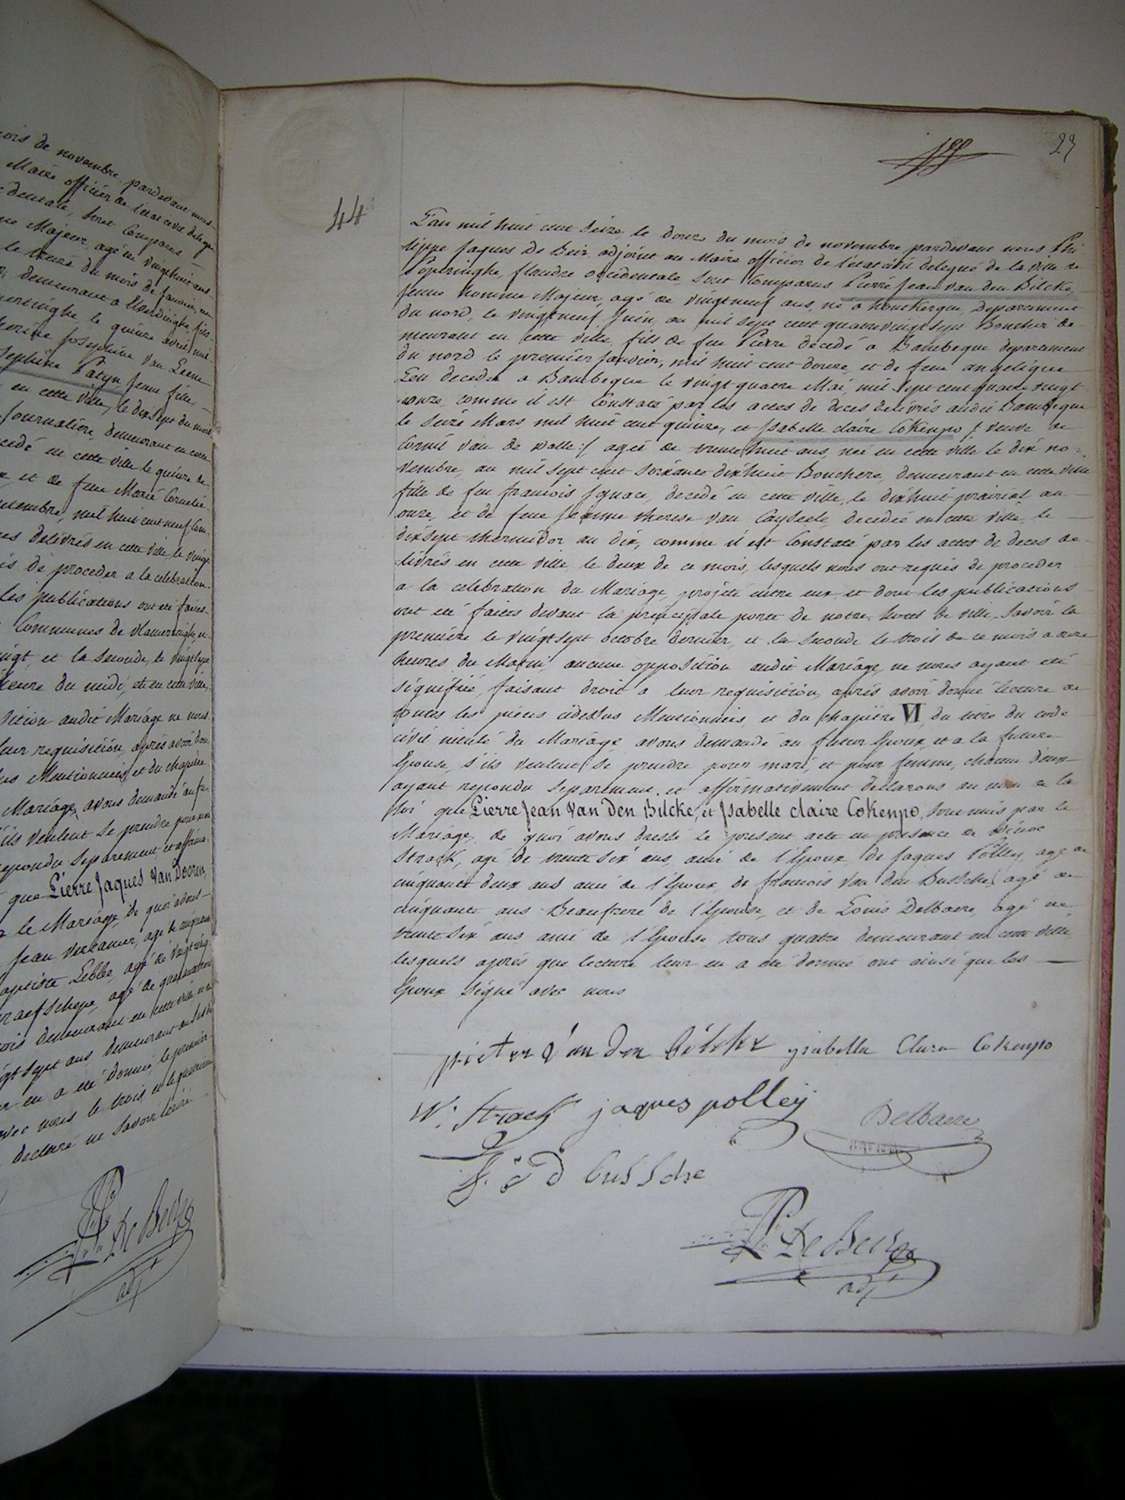 ois de novembre pardevant nous
Maire officier de l'etat civil delegué
dentale, sont Comparus
me Majeur agé de vingt huit ans
le du mois de fevrier,
demeurant a Vlamertinghe, fils
peringhe le quinze avril mil
Josephine Van
Josephine Patyn jeune fille
en cette ville, le dix sept du mois
Journaliere, demeurant en cette
cedé en cette ville le quinze de
et de feue Marie Cornelie
novembre, mil huit cent neuf
es delivrés en cette ville le vingt
is de proceder a la celebration
les publications ont été faites
Communes de Vlamertinghe,
vingt, et la seconde, le vingt sept
heure du midi, et en cette ville,
sition audit Mariage ne nous
leur requisition, après avoir donné
us Mentionnées et du chapitre
Mariage, avons demandé au fu-
s'ils veulent se prendre pour mari
repondu separement et affirma-
que Pierre Jaques Van Dooren
le Mariage, de quoi avons
Jean agé de cinquante
aptiste Lebbe, agé de vingt
agé de quarante
ois demeurant en cette ville
ngt sept ans demeurant
ur en a été donné, le premier
avec nous le trois et le quatrieme
declaré ne Savoir écrire
P. De Beir
adjt
23
44
L'an mil huit cent Seize le douze du mois de novembre pardevant nous Phi
lippe Jaques De Beir adjoint au Maire officier de l'etat civil delegué de la ville de
Poperinghe, flandre occidentale, Sont Comparus Pierre Jean van den Bilcke,
jeune homme Majeur, agé de vingtneuf ans, né a houtkerque, Departement
du nord, le vingtneuf Juin, au mil sept cent quatrevingt sept Boucher de-
meurant en cette ville, fils de feu Pierre décédé a Bambeque departement
du nord le premier janvier, mil huit cent douze, et de feue angelique
Leu decedée a Bambeque le vingt quatre Mai, mil sept cent quatre vingt
onze, comme il est Constaté par les actes de deces delivrés audit Bambeque
le Seize Mars mil huit cent quinze, et Isabelle claire Cokenpo / veuve de
Cornil van de walle / agée de trente huit ans, née en cette ville le dix no-
vembre, au mil sept cent soixante dixhuit Bouchere, demeurant en cette ville
fille de feu francois Ignace, decedé en cette ville, le dixhuit prairial an
onze, et de feue Jeanne therese van Cayseele, decedée en cette ville, le
dixsept thermidor an dix, comme il est Constaté par les actes de deces de-
livrés en cette ville le deux de ce mois, lesquels nous ont requis de proceder
a la celebration du Mariage projeté entre eux et dont les publications
ont été faites devant la principale porte de notre hotel de ville, Savoir la
premiere le vingtsept octobre dernier, et la seconde le trois de ce mois a onze
heures du Matin aucune opposition audit Mariage, ne nous ayant été
signifiée, faisant droit a leur requisition, après avoir donné lecture de
toutes les pieces cidessus Mentionnées et du chapitre VI, du titre du code
civil intitulé du Mariage avons demandé au futur Epoux et a la future
Epouse, s'ils veulent se prendre pour mari, et pour femme, chacun d'eux
ayant repondu separement et affirmativement declarons au nom de la
loi que Pierre Jean Van Den Bilcke, et Isabelle claire Cokenpo, Sont unis par le
Mariage, de quoi avons dressé le present acte en presence de
Strack, agé de trente six ans, ami de l'Epoux, de Jaques Polley, agé de
cinquante deux ans ami de l'Epoux, de francois van den Bussche, agé de
cinquante ans Beaufrere de l'Epouse, et de Louis Delbaere, agé de
trente six ans ami de l'Epouse tous quatre demeurant en cette ville
lesquels après que lecture leur en a été donné ont ainsi que les
Epoux Signé avec nous
pieter Van den bilcke ysabella Clara Cokenpo
W. Strack jaques polley
Delbaere
F. v d bussche
P. De Beir
adjt